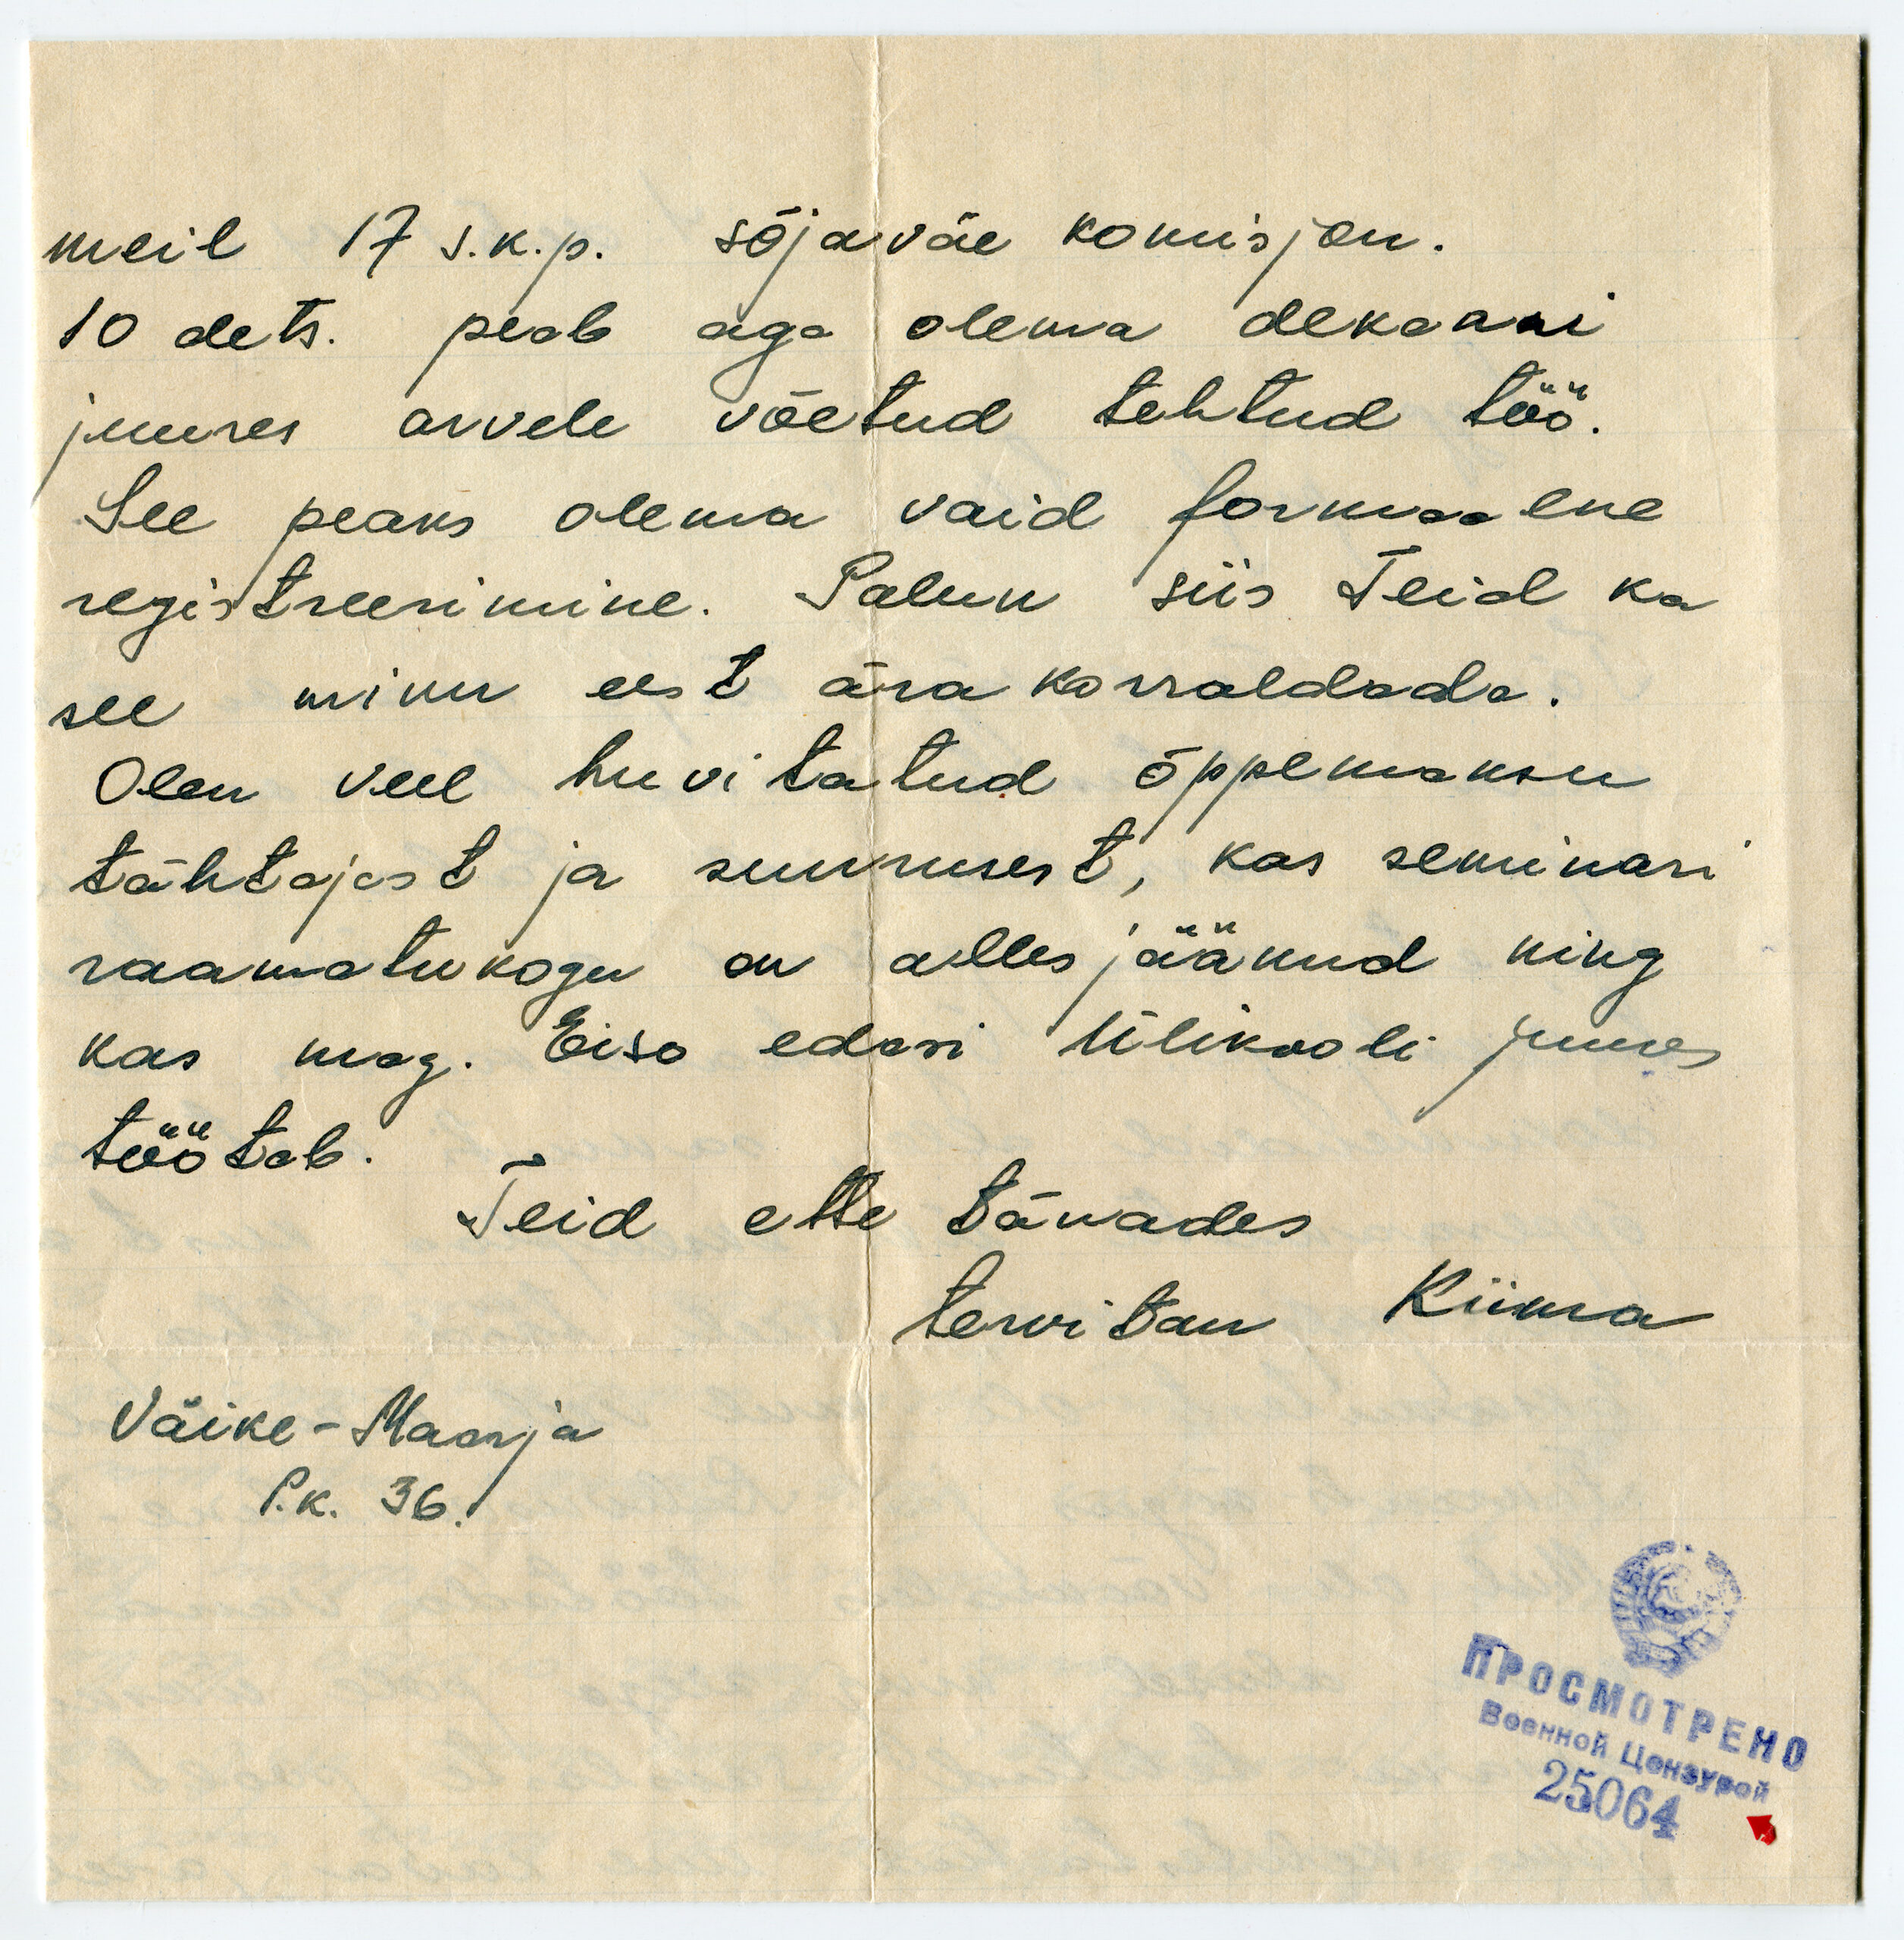 meil 17 s.k.p. sõjaväe komisjon.
10 dets. peab aga olema dekaani
juures arvele võetud tehtud töö.
See peaks olema vaid formaalne
registreerimine. Palun siis Teid ka
see minu eest ära korraldada.
Olen veel huvitatud õppemaksu
tähtajast ja suurusest, kas seminari
raamatukogu on alles jäänud ning
kas mag. Eiso edasi Ülikooli juures
töötab.
Teid ette tänades
tervitan Kiima
Väike-Maarja
P.k. 36.
ПРОСМОТРЕНО
Военной Цензурой
25064